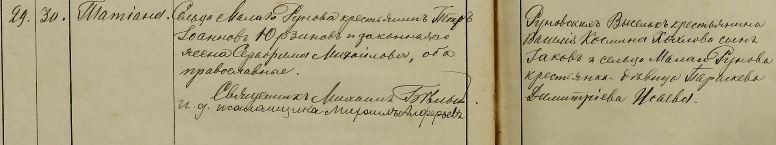 29. 30. Татіана. Сельца Малаго Рунова крестьянинъ Петръ
Іоанновъ Юрзиновъ и законная его
жена Серафима Михайлова, оба
православные.
Священникъ Михаилъ
и. д. псаломщика Михаилъ Алферьевъ
Руновскихъ Выселкъ крестьянина
Василія Космина сынъ
Іаковъ и сельца Малаго Рунова
крестьянка - дѣвица Параскева
Димитріева Исаева.